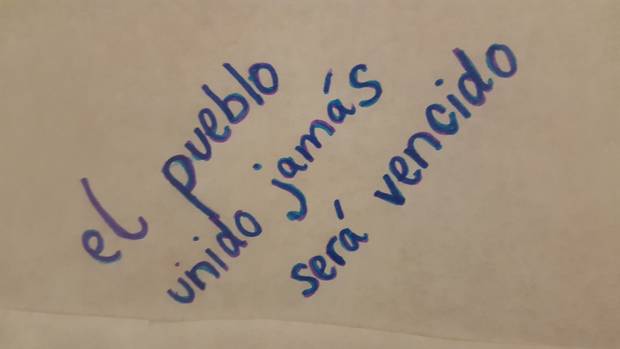 el pueblo
unido jamás
será vencido